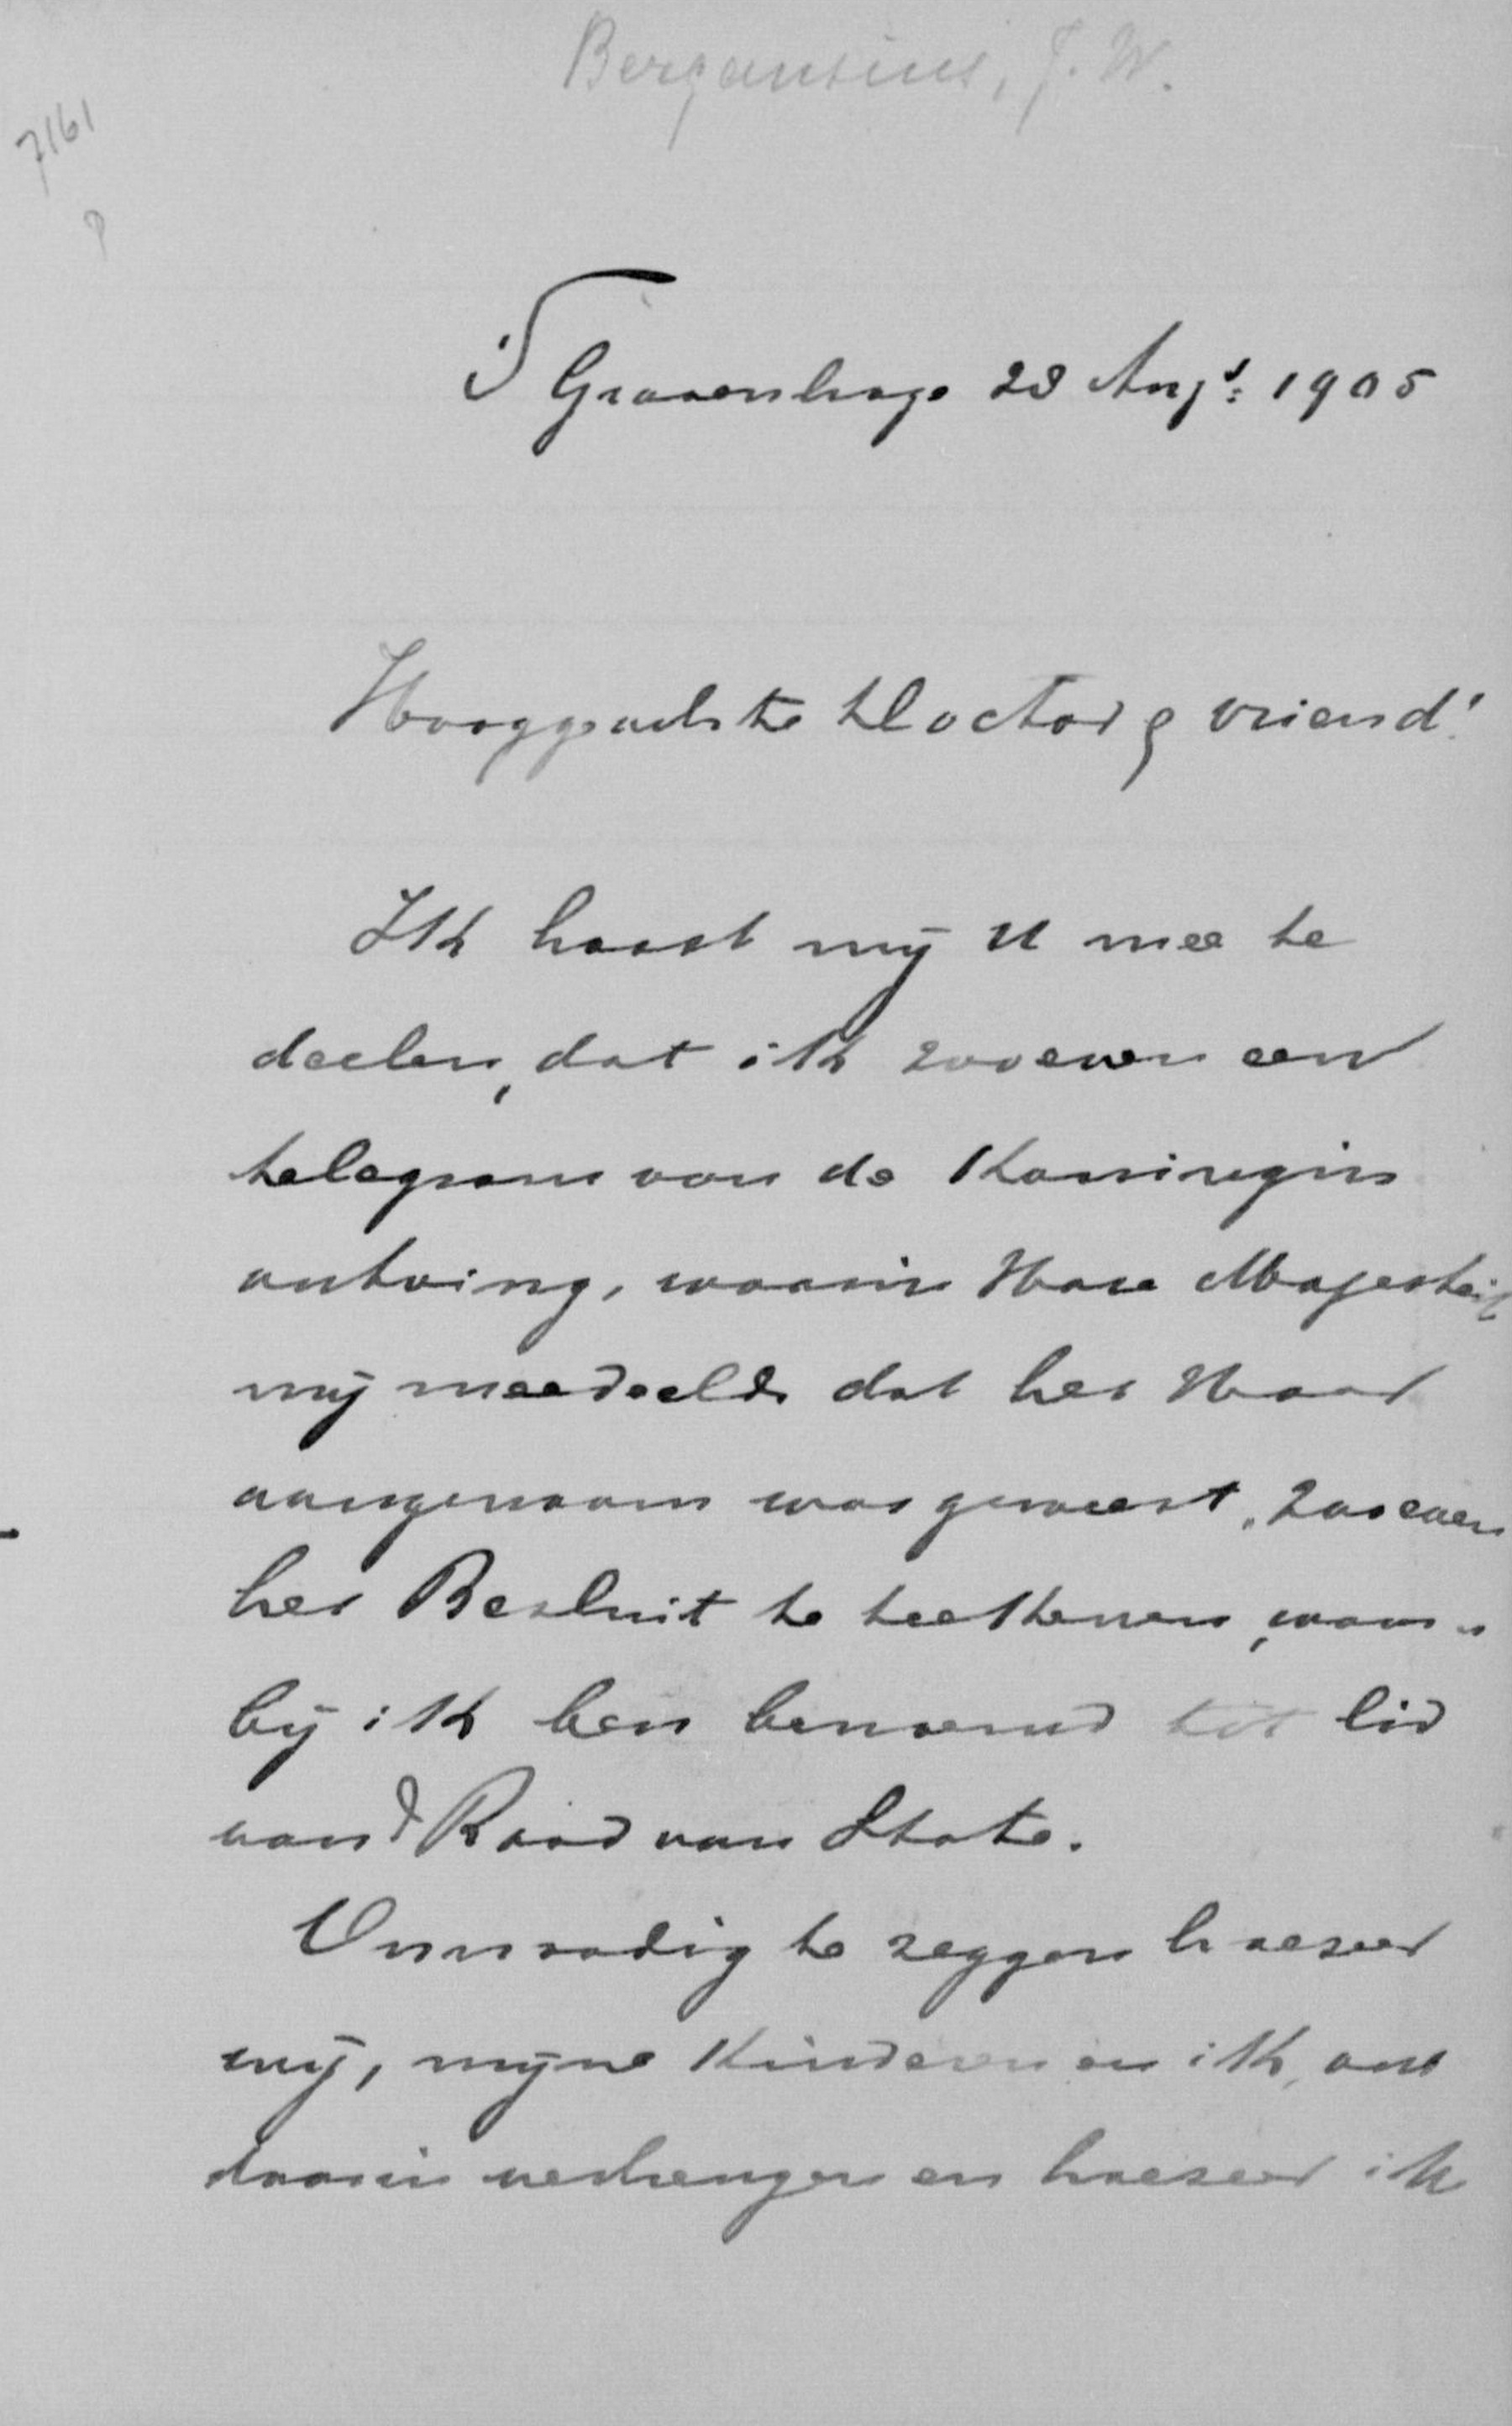 Bergansius, J. W.
7161
P
'S Gravenhage 28 Augs: 1905
Hooggeachte Doctor & vriend!
Ik haast mij U mee te
deelen, dat ik zooeven een
telegram van de Koningin
ontving, waarin Hare Majesteit
mij meedeelde dat het Haar
aangenaam was geweest, zooeven
het Besluit te teekenen, waar-
bij ik ben benoemd tot lid
van d Raad van State.
Onnoodig te zeggen hoezeer
wij, mijne kinderen en ik, ons
daarin verheugen en hoezeer ik